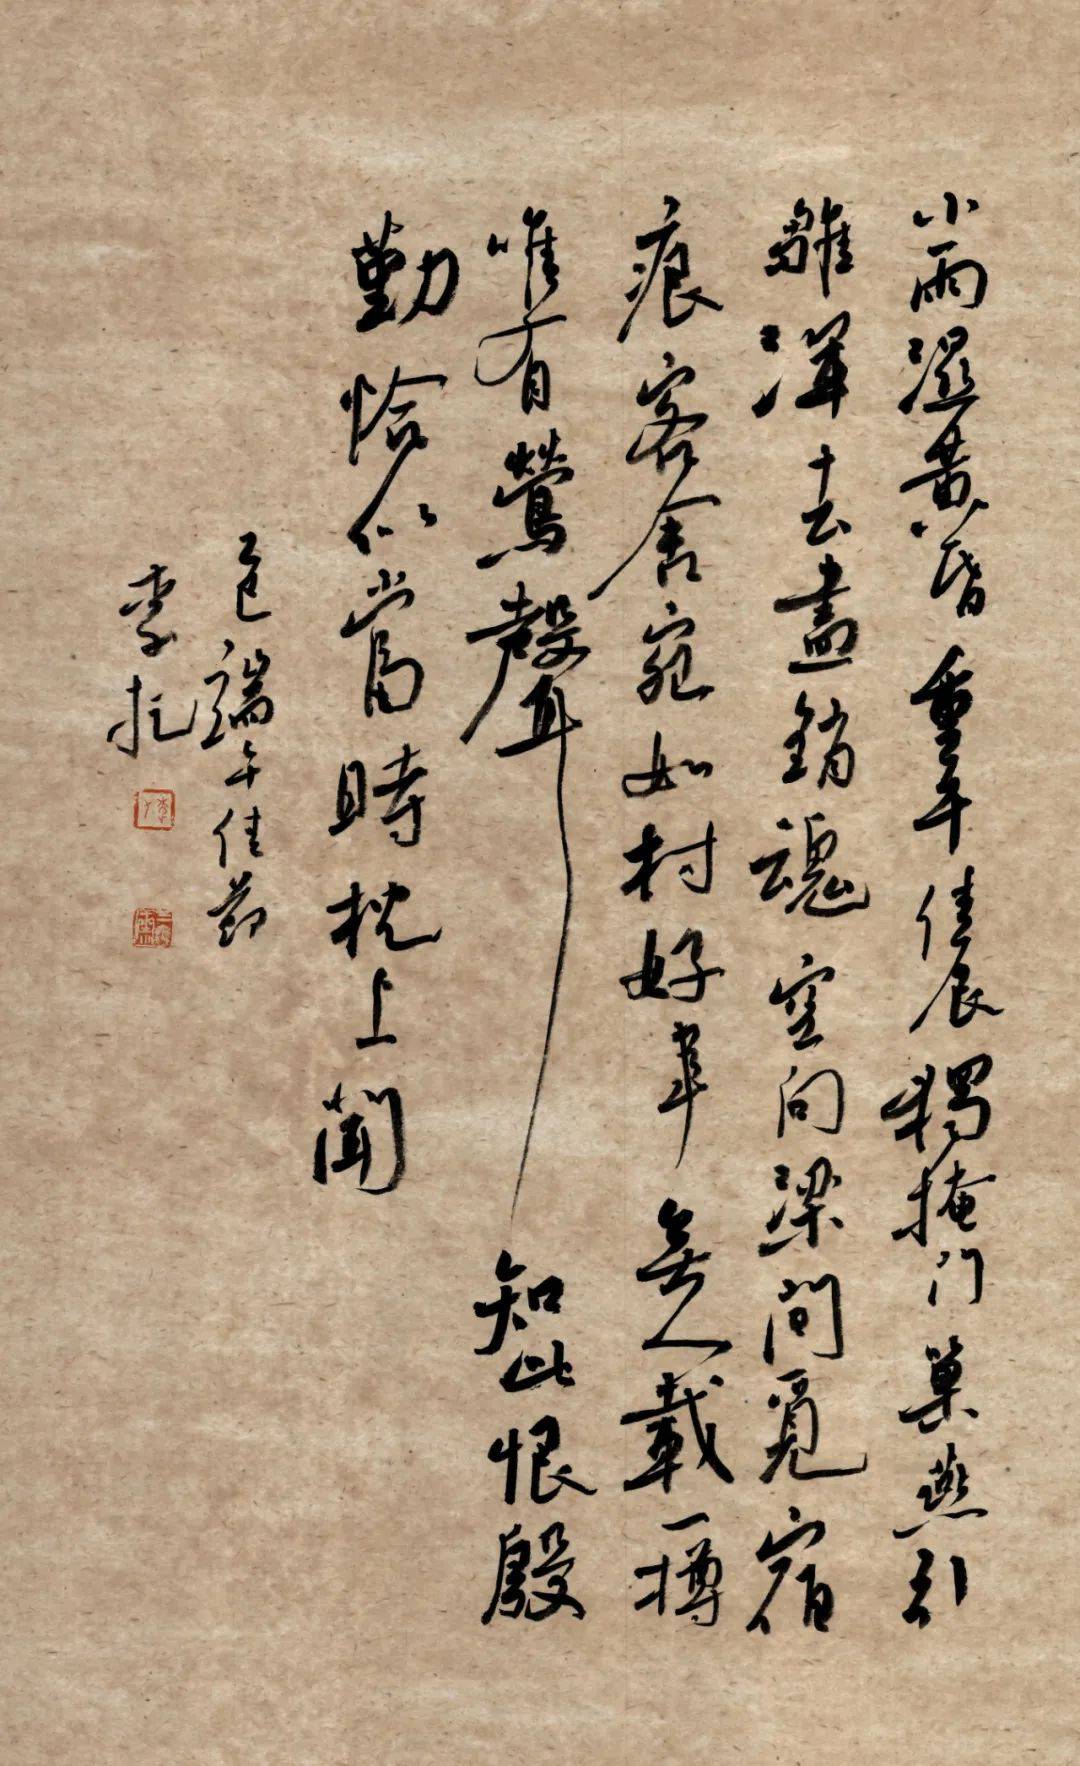 小雨濕黄昏重午佳辰獨掩門巢燕引
雛渾去盡銷魂空向梁間覓宿
痕客舍宛如村好事無人載一樽
唯有鶯聲知此恨殷
勤恰似當時枕上聞
乙巳端午佳節
李